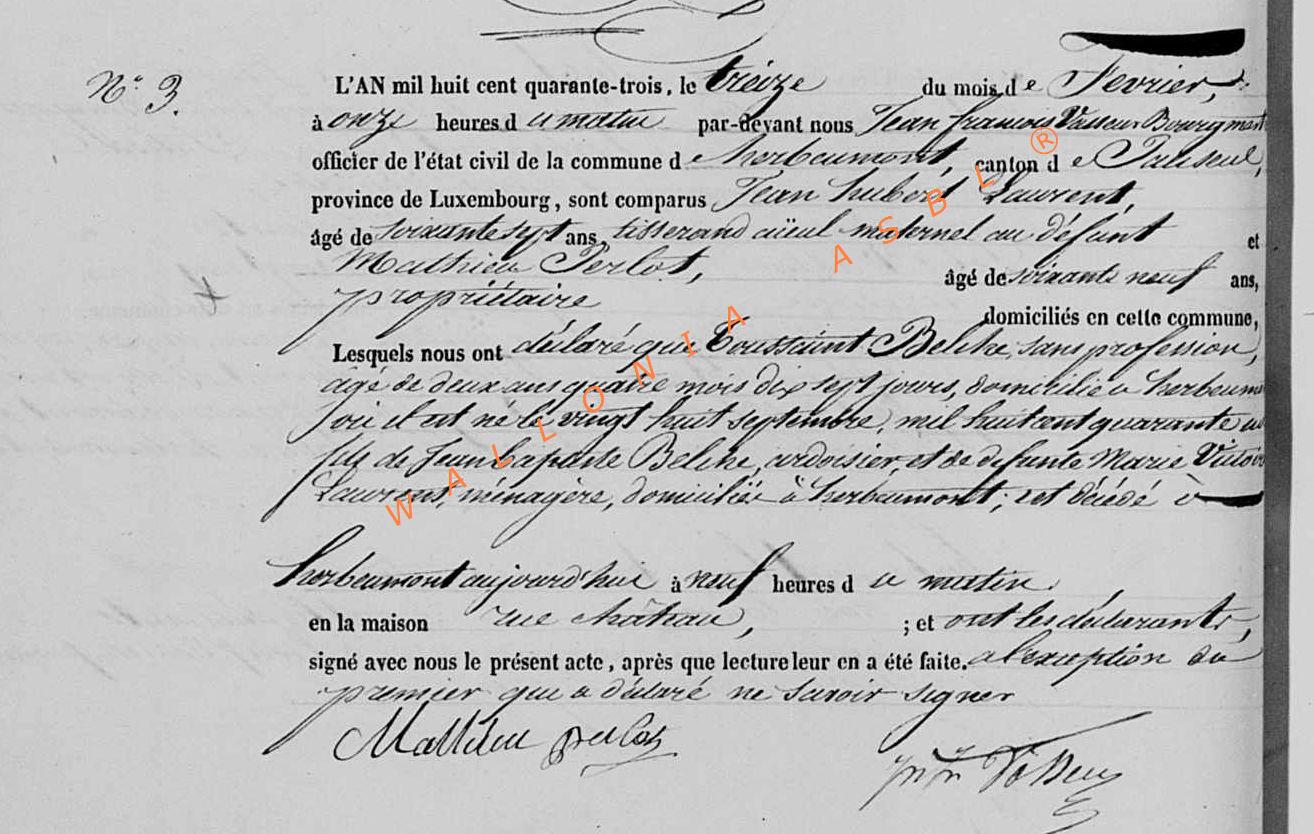 N° 3.
L'AN mil huit cent quarante-trois, le treize du mois de Fevrier,
à onze heures du matin par-devant nous Jean francois Vasseur Bourgmest
officier de l'état civil de la commune de herbeumont, canton de Paliseul,
province de Luxembourg, sont comparus Jean hubert Laurent,
âgé de soixante sept ans, tisserand aïeul maternel au défunt et
Mathieu Perlot, âgé de soixante neuf ans,
propriétaire domiciliés en cette commune,
Lesquels nous ont déclaré que Toussaint Belche, sans profession,
âgé de deux ans quatre mois dix sept jours, domicilié à herbeum
où il est né le vingt huit septembre, mil huit cent quarante
fils de Jean baptiste Belche, ardoisier, et de defunte Marie Victoir
Laurent, ménagère, domiciliée à herbeumont; est décédé à
herbeumont aujourd'hui à neuf heures du matin,
en la maison rue château, ; et ont les déclarants,
signé avec nous le présent acte, après que lecture leur en a été faite. a l'exception du
premier qui a déclaré ne savoir signer
Mathieu perlot
WALLONIA ASBL ®